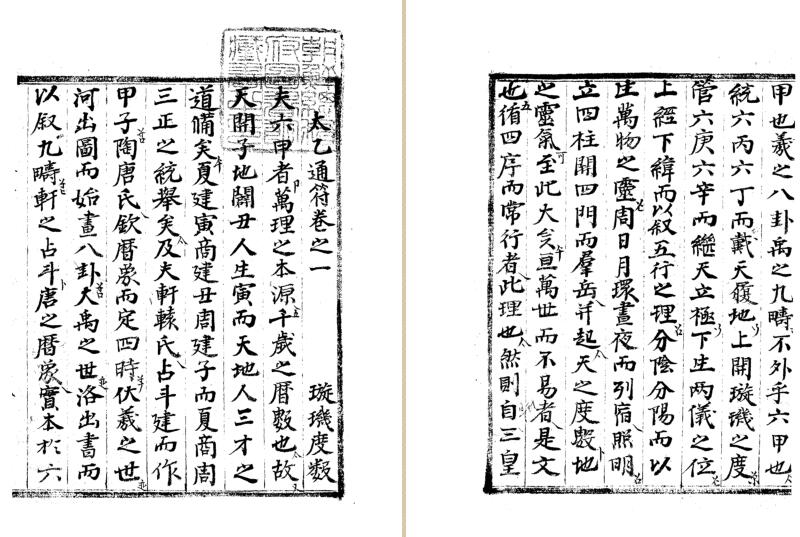 太乙通符卷之一 璇璣度数
夫六甲者萬理之本源千歲之曆數也故
天開子地闢丑人生寅而天地人三才之
道備矣夏建寅商建丑周建子而夏商周
三正之統擧矣及夫軒轅氏占斗建而作
甲子陶唐氏欽曆象而定四時伏羲之世
河出圖而始畫八卦大禹之世洛出書而
以叙九疇軒之占斗唐之曆象實本於六
甲也羲之八卦禹之九疇不外乎六甲也
統六丙六丁而戴天履地上開璇璣之度
管六庚六辛而繼天立極下生两儀之位
上經下緯而以叙五行之理分陰分陽而以
生萬物之靈周日月環晝夜而列宿照明
立四柱開四門而羣岳并起天之度數地
之靈氣至此大矣亘萬世而不易者是文
也循四序而常行者此理也然則自三皇